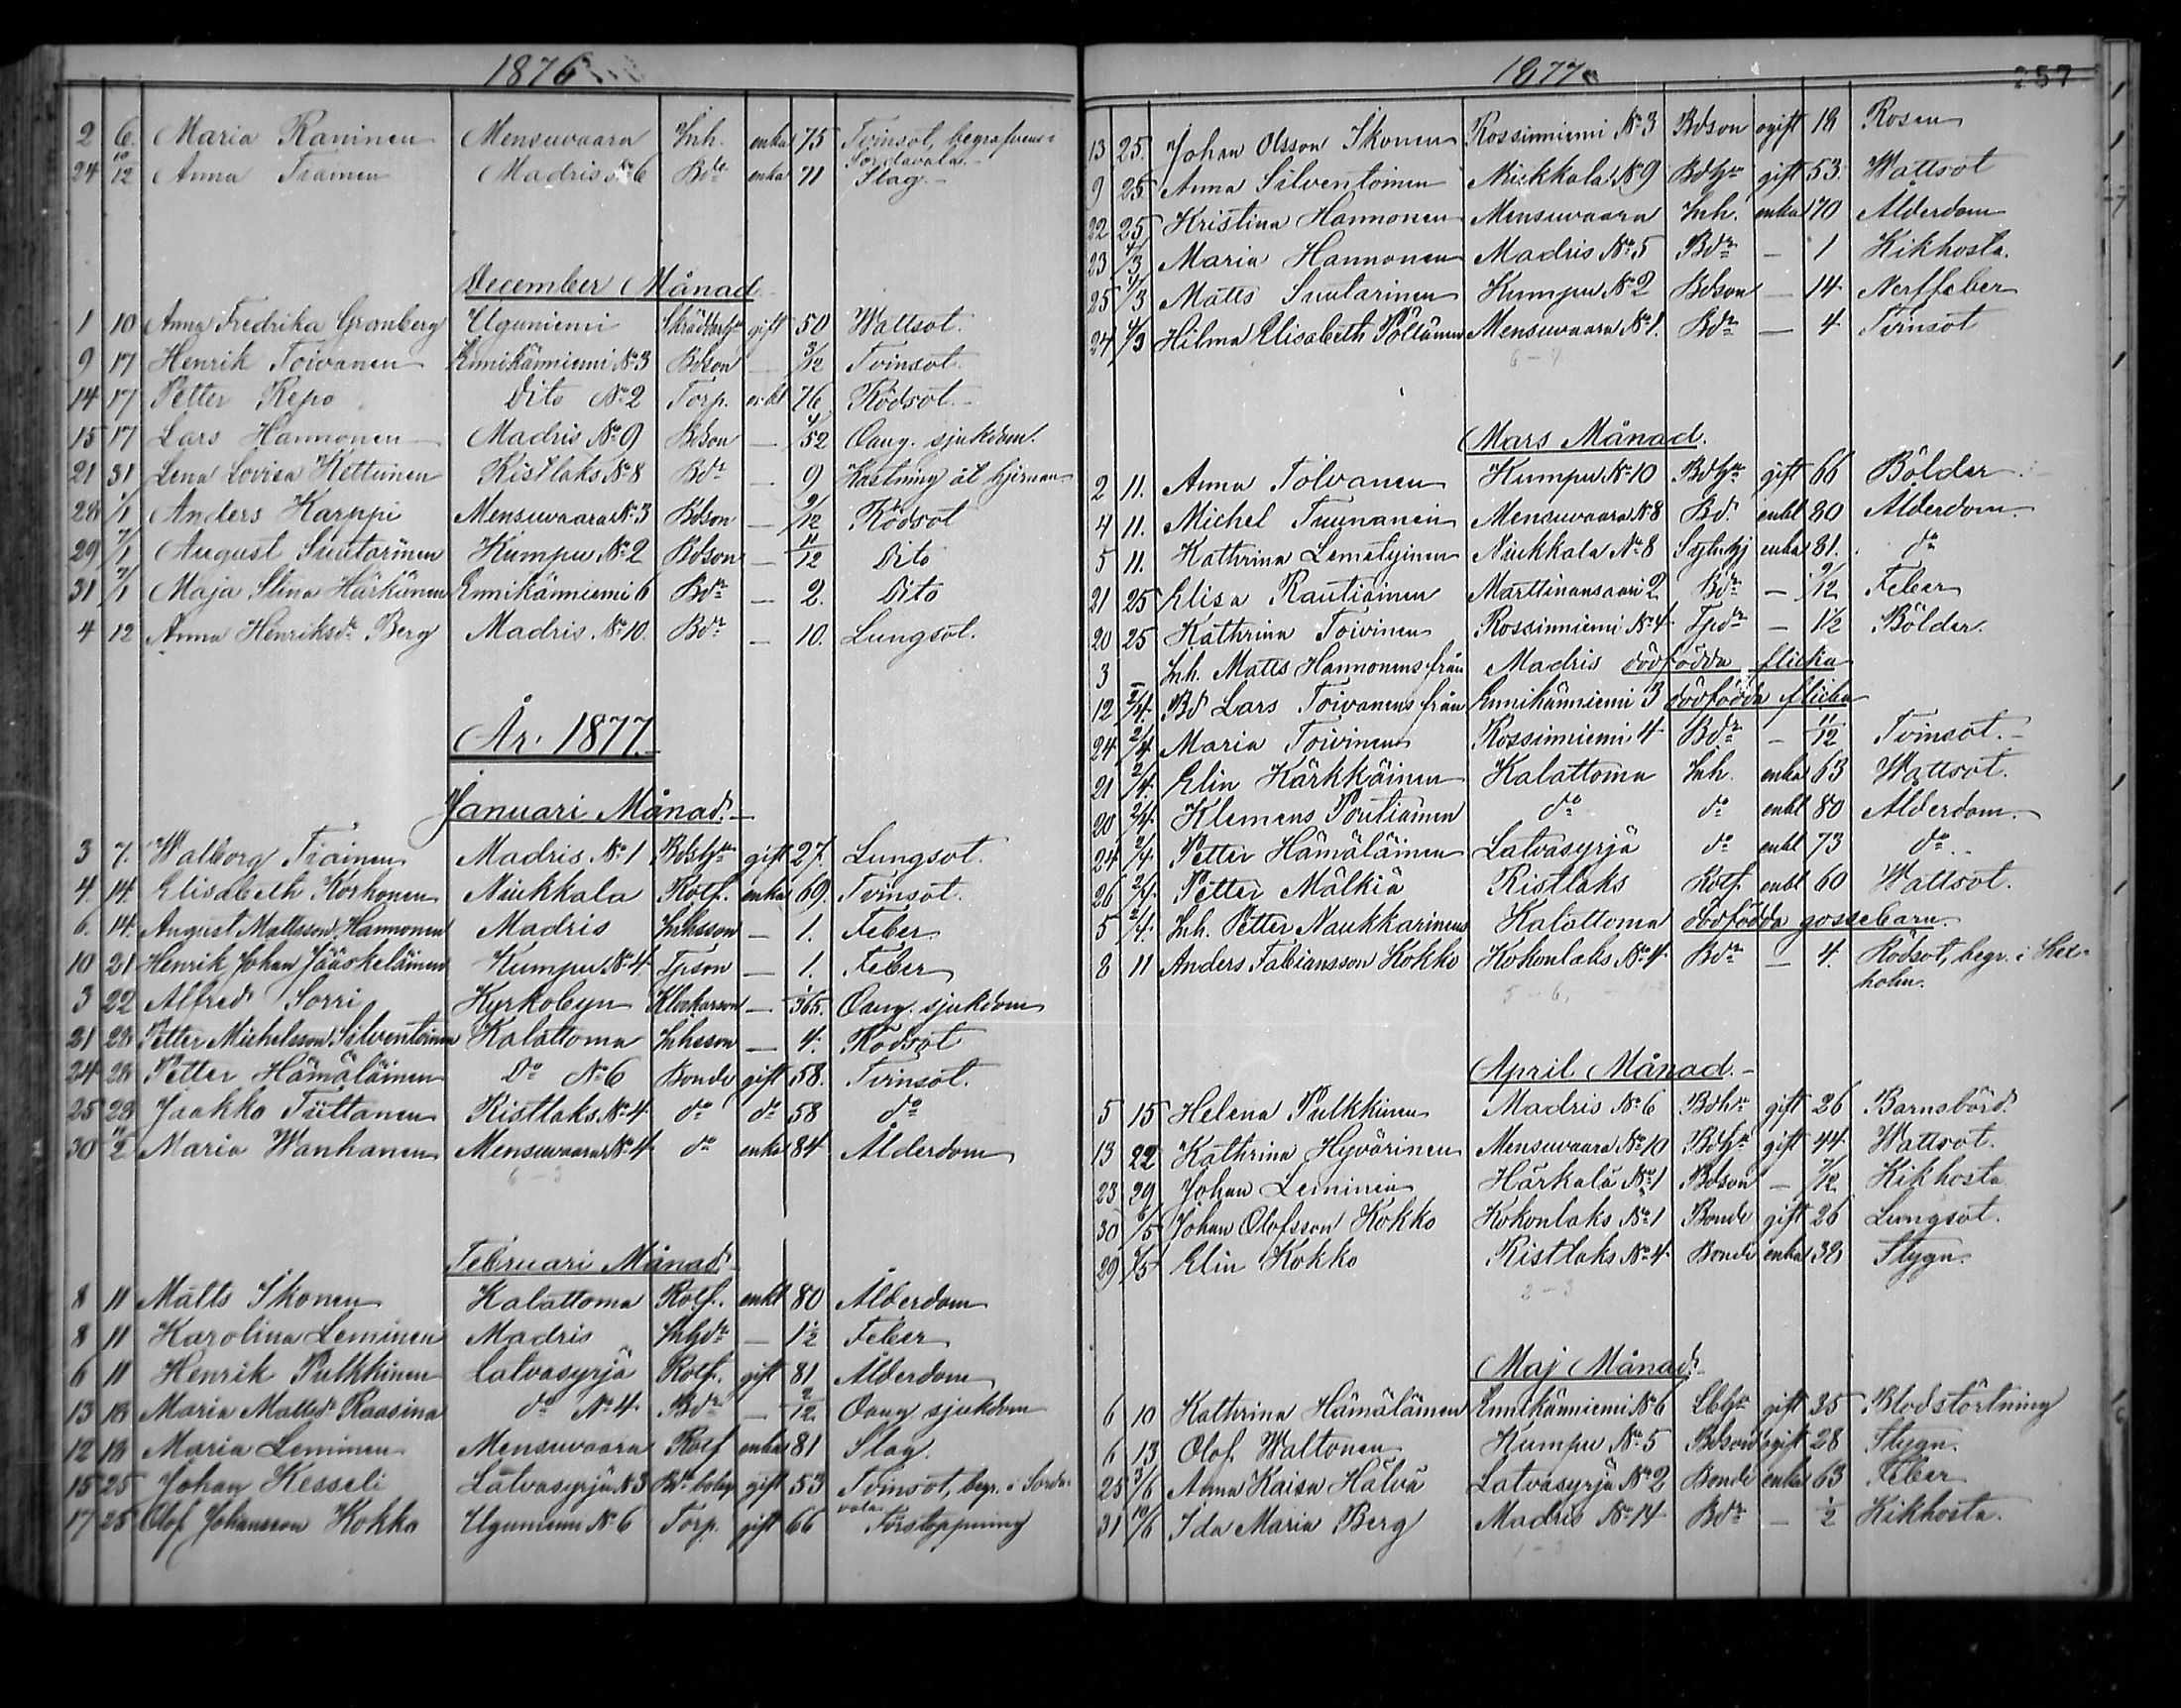 1876
2 6. Maria Raninen Mensuvaara Inh. enka 75 Tvinsot, begrafvens i
Sordavala.
24 10/12 Anna Tiainen Madris No 6 Bde enka 71 Slag.
December Månad
1 10 Anna Fredrika Granberg Uguniemi gift 50 Wattsot.
9 17 Henrik Toivanen Ennikänniemi No 3 Bdson — 3/12 Tvinsot.
14 17 Petter Repo Dito No 2 Torp. enkl 76 Rödsot.
15 17 Lars Hannonen Madris No 9 Bdson — 4/52 Oang. sjukdom.
21 31 Lena Lovisa Kettunen Ristlaks No 8 Bdr — 9 Kastning åt hjernan
28 1/1 Anders Karppi Mensuvaara No 3 Bdson — 9/12 Rödsot
29 7/1 August Suutarinen Kumpu No 2 Bdson — 11/12 Dito
31 7/1 Maja Stina Härkönen Ennikänniemi 6 Bdr — 2. Dito
4 12 Anna Henriksdr Berg Madris No 10. Bdr — 10. Lungsot.
År 1877.
Januari Månad.
3 7. Walborg Tiainen Madris No 1 Bdshu gift 27. Lungsot.
4. 14. Elisabeth Korhonen Niukkala Rotf. enka 69. Tvinsot.
6. 14. August Mattsson Hannonen Madris Inhsson — 1. Feber
10 21 Henrik Johan Jääskeläinen Kumpu No 4 Tpson — 1. Feber
3 22 Alfred Sorri Kyrkobyn Klockarson — 1/365. Oang. sjukdom
21 28 Petter Michelsson Silventoinen Kalattoma Inhsson — 4. Rödsot
24 28 Petter Hämäläinen Do No 6 Bonde gift 58. Tvinsot.
25 28 Jaakko Tiittanen Ristlaks No 4 do do 58 do
30 11/2 Maria Wanhanen Mensuvaara No 4 do enka 84 Ålderdom
6-3
Februari Månad
8 11 Matts Ikonen Kalattoma Rotf. enkl 80 Ålderdom
8 11 Karolina Leminen Madris Inhdr — 1½ Feber
6 11 Henrik Pulkkinen Latvasyrjä Rotf. gift 81 Ålderdom
13 18 Maria Mattsdr Raasina do No 4 Bdr — 2/12 Oang sjukdom
12 18 Maria Leminen Mensuvaara Rotf enka 81 Slag.
15 25 Johan Kesseli Latvasyrjä N 3 gift 53 Tvinsot, begr. i Sorda-
vala
17 25 Olof Johansson Kokko Uguniemi No 6 Torp. gift 66 Förstoppning
1877 257
13 25. Johan Olsson Ikonen Rossinniemi No 3 Bdson ogift 18 Rosen
9 25 Anna Silventoinen Niukkala No 9 Bdhu gift 53. Wattsot
22 25 Kristina Hannonen Mensuvaara Inh. enka 70 Ålderdom
23 4/3 Maria Hannonen Madris No 5 Bdr — 1 Kikhosta.
25 4/3 Matts Suutarinen Kumpu No 2 Bdson — 14 Nerffeber
24 4/3 Hilma Elisabeth Pöllänen Mensuvaara No 1. Bdr — 4 Tvinsot
Mars Månad.
2 11. Anna Tolvanen Kumpu No 10 Bdhu gift 66 Bölder
4 11. Michel Tuunanen Mensuvaara No 8 Bd. enkl 80 Ålderdom.
5 11. Kathrina Lemetyinen Niukkala No 8 enka 81. do
21 25 Elisa Rautiainen Marttinansaari 2 Bdr — 9/12 Feber
20 25 Kathrina Toivinen Rossinniemi No 4 Tpdr — 1½ Bölder.
3 Inh. Matts Hannonens från Madris dödfödda flicka
12 2/4. Bd Lars Toivanens från Ennikänniemi 3 dödfödda flicka
24 2/4 Maria Toivinen Rossinniemi 4 Bdr — 11/12 Tvinsot.
21 2/4. Elin Kärkkäinen Kalattoma Inh. enka 63 Wattsot.
20 2/4. Klemens Poutiainen do do enkl 80 Ålderdom.
24 2/4. Petter Hämäläinen Latvasyrjä do enkl 73 do
26 2/4. Petter Mälkiä Ristlaks Rotf. enkl 60 Wattsot.
5 2/4. Inh. Petter Naukkarinens Kalattoma dödfödda gossebarn.
8 11 Anders Fabiansson Kokko Kokonlaks No 4 Bdr — 4. Rödsot, begr. i Kex-
holm.
April Månad.
5 15 Helena Pulkkinen Madris No 6 Bdhu gift 26 Barnsbörd
13 22 Kathrina Hyvärinen Mensuvaara No 10 Bdhu gift 44 Wattsot.
23 29 Johan Leminen Härkälä No 1 Bdson — 7/12 Kikhosta
30 6/5 Johan Olofsson Kokko Kokonlaks No 1 Bonde gift 26 Lungsot.
29 6/5 Elin Kokko Ristlaks No 4 Bonde enka 38 Stygn.
2-3
Maj Månad.
6 10 Kathrina Hämäläinen Ennikänniemi No 6 gift 35 Blodstörtning
6 13 Olof Waltonen Kumpu No 5 Bdson ogift 28 Stygn.
25 3/6 Anna Kaisa Hälvä Latvasyrjä No 2 Bonde enka 63 Feber
31 10/6 Ida Maria Berg Madris No 14 Bdr — ½ Kikhosta.
1-3